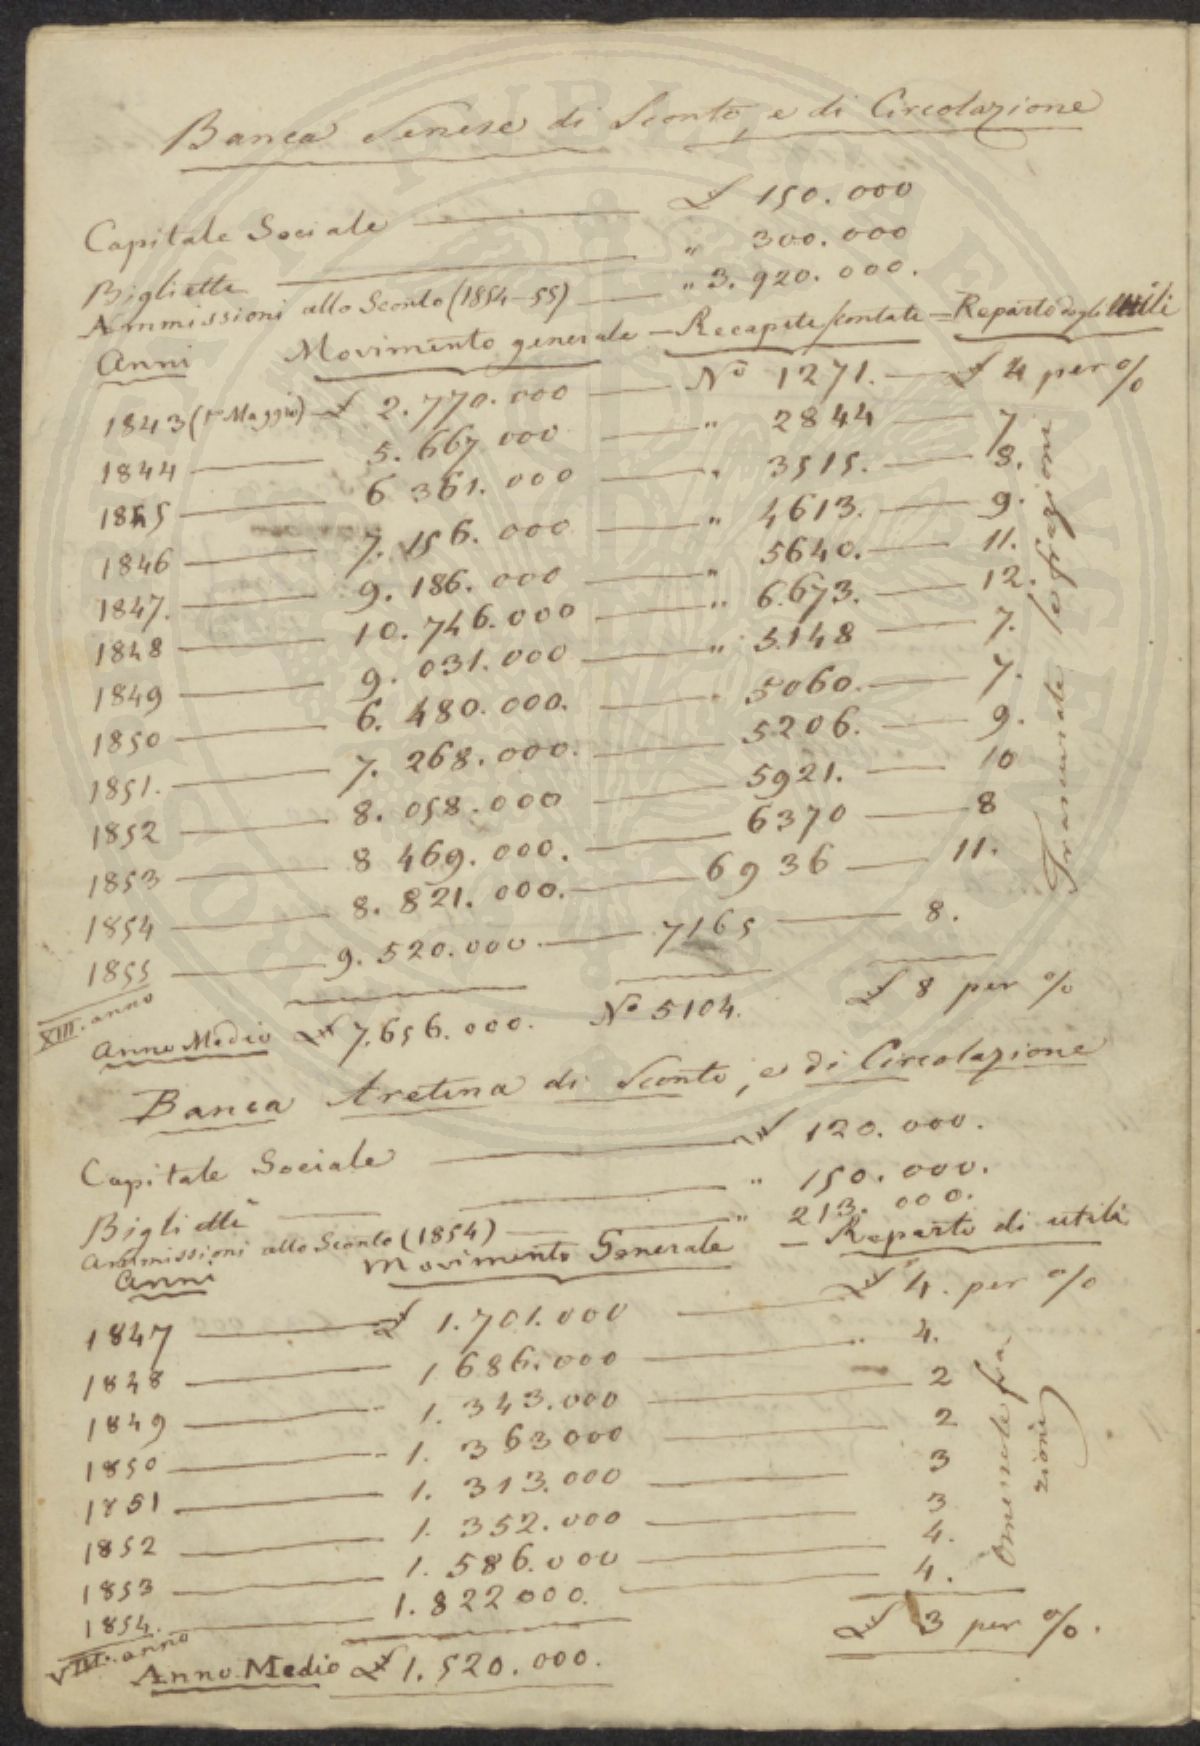 Banca Senese di Sconto, e di Circolazione
Capitale Sociale £ 150.000
Biglietti " 300.000
Ammissioni allo Sconto (1854-55) " 3.920.000.
Anni Movimento generale - Recapiti scontati = Reparto degli Utili
1843 (1º Maggio) £ 2.770.000 Nº 1271. £ 4 per %
1844 5.667 000 " 2844 7
1845 6 361.000 " 3515. 8.
1846 7.156.000 " 4613. 9.
1847. 9.186.000 " 5640. 11.
1848 10.746.000 " 6.673. 12.
1849 9.031.000 " 5148 7.
1850 6.480.000. " 5060. 7.
1851. 7.268.000. 5206. 9.
1852 8.058.000 5921. 10
1853 8 469.000. 6370 8
1854 8.821.000. 6936 11.
1855 9.520.000. 7165 8.
Trascurate le frazioni
XIII. anno
Anno Medio £ 7.656.000. Nº 5104. £ 8 per %
Banca Aretina di Sconto, e di Circolazione
Capitale Sociale £ 120.000.
Biglietti " 150.000.
Ammissioni allo Sconto (1854) " 213.000.
Anni Movimento Generale - Reparto di utili
1847 £ 1.701.000 £ 4. per %
1848 1 686.000 " 4.
1849 1.343.000 2
1850 1.363000 2
1851 1.313.000 3
1852 1.352.000 3
1853 1.586.000 4.
1854. 1.822000. 4.
Omesse le fra
zioni
VIII. anno
Anno Medio £ 1.520.000. £ 3 per %.